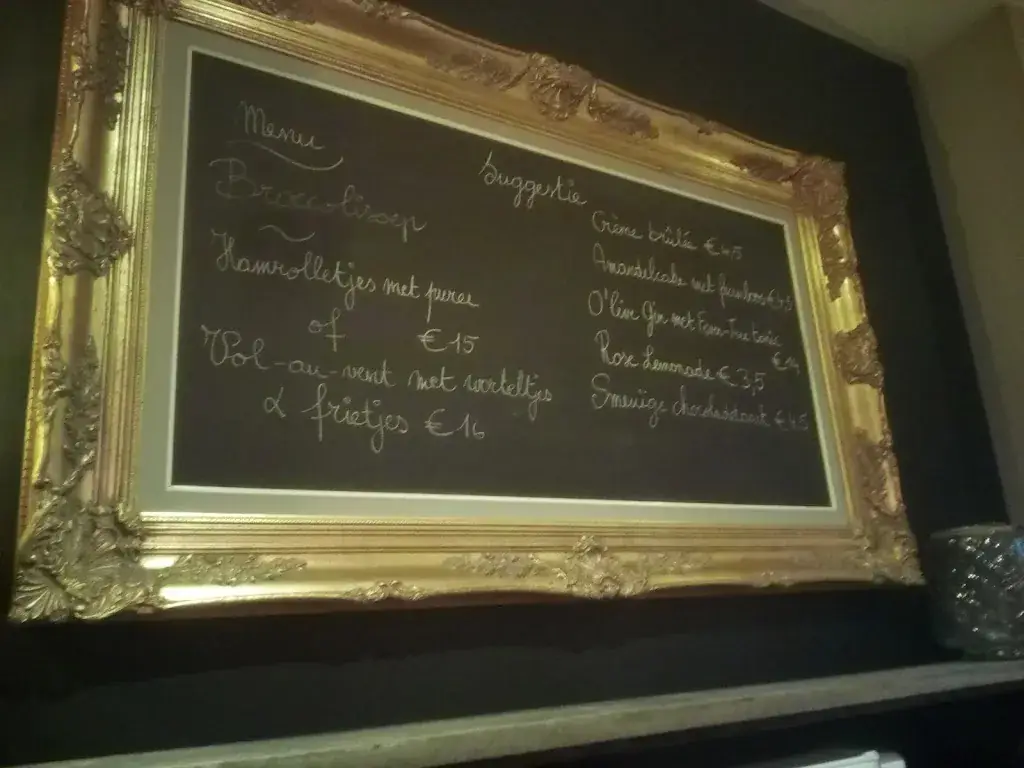 Menu
Broccolisoep
Hamrolletjes met puree
of €15
Vol-au-vent met worteltjes
& frietjes €16
Suggestie
Crème brûlée €4,5
Amandelcake met €4,5
O'live Gin met Fever-Tree tonic
€14
Rose Lemonade €3,5
Smeuïge chocoladetaart €4,5